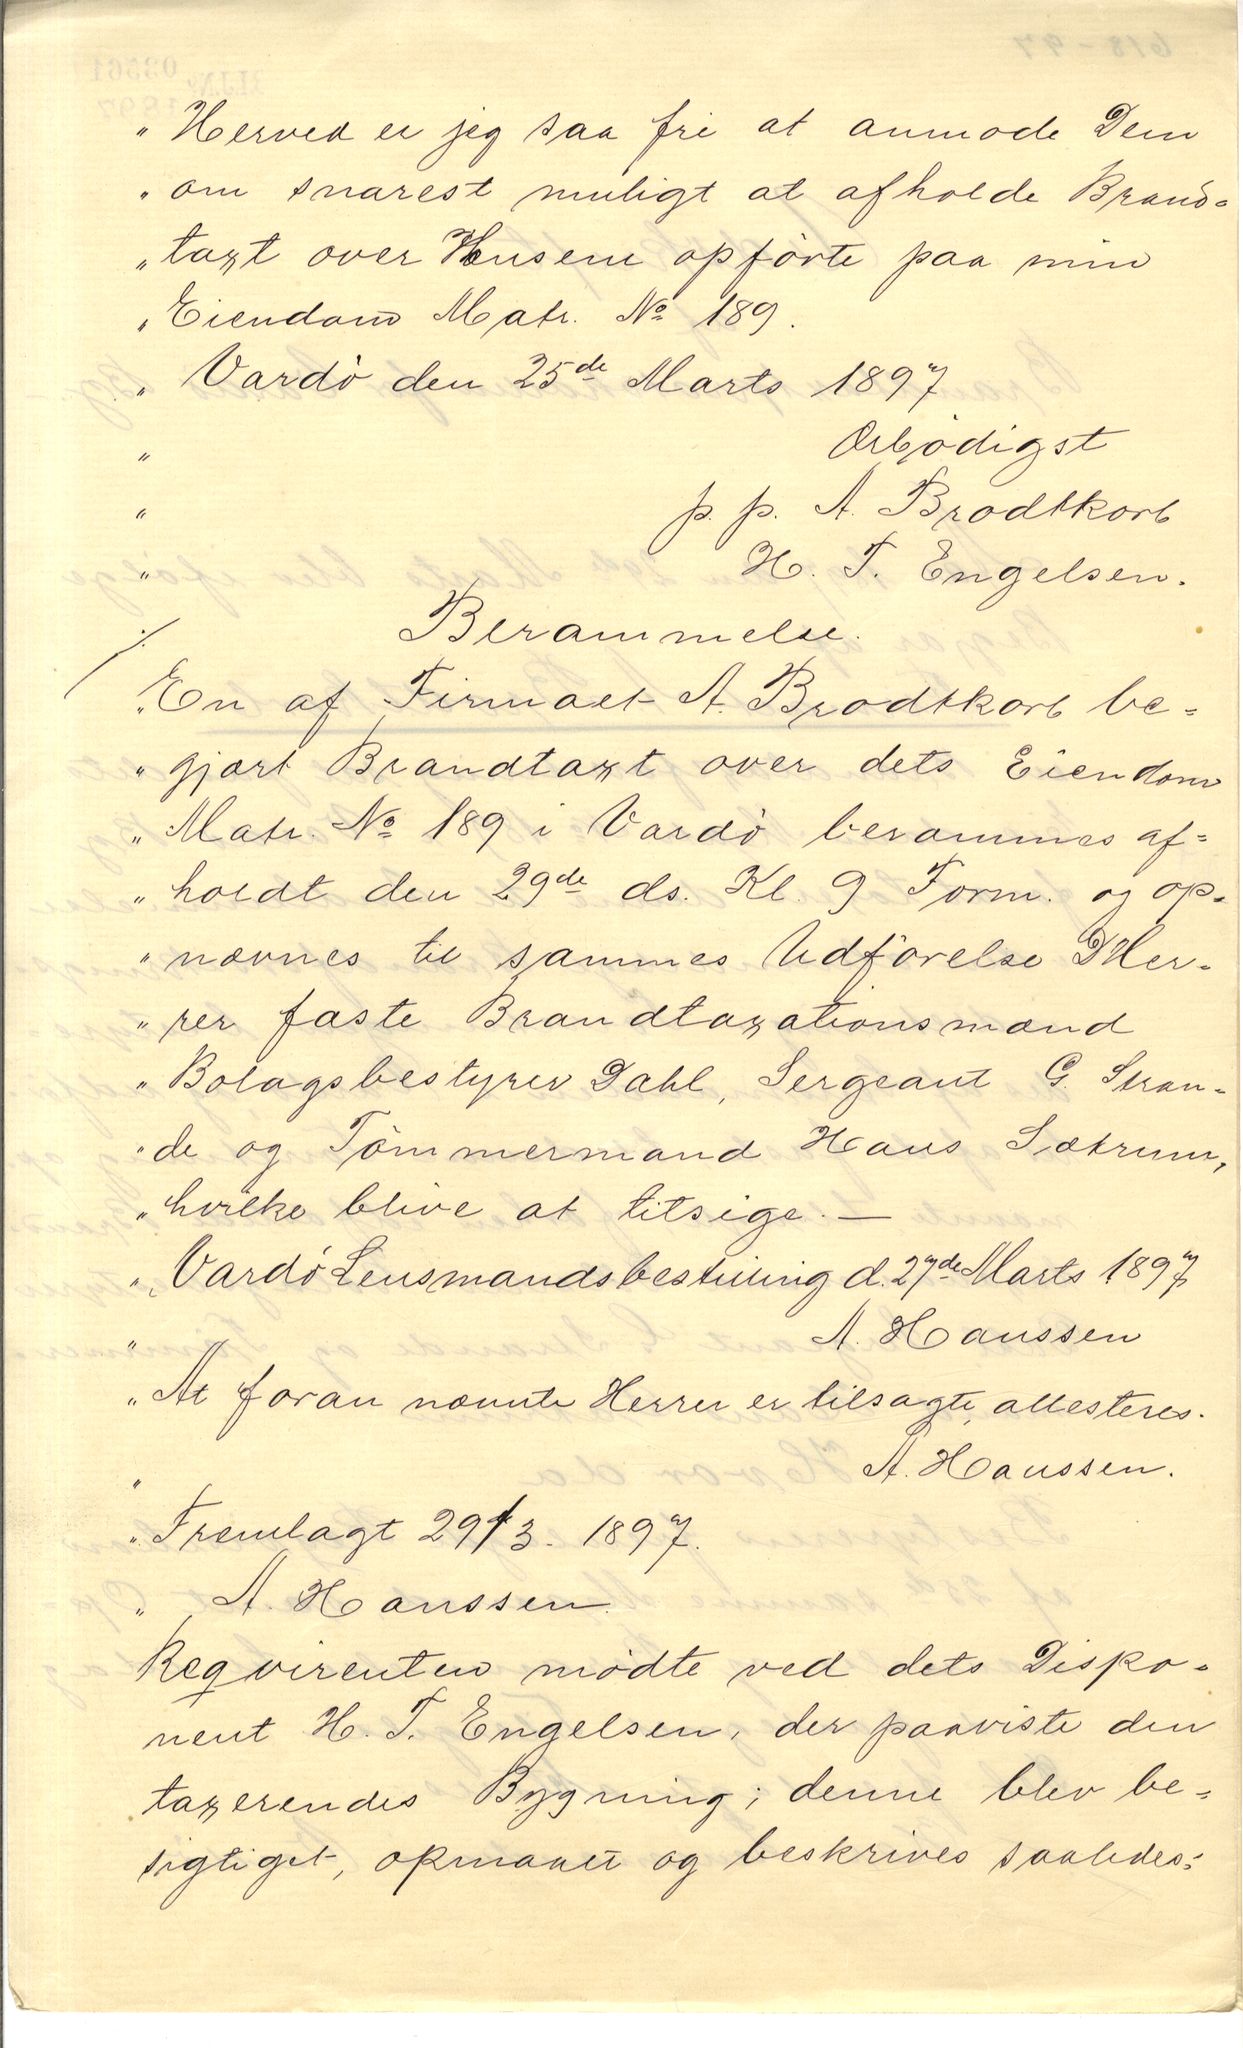 „ Herved er jeg saa fri at anmode Dem
„ om snarest muligt at afholde Brand=
„ taxt over Husene opførte paa min
„ Eiendom Matr. No 189.
„ Vardö den 25de Marts 1897
„ Ærbødigst
„ p. p. A. Brodtkorb
„ H. T. Engelsen.
Berammelse.
„ En af Firmaet A. Brodtkorb be=
„ gjært Brandtaxt over dets Eiendom
„ Matr. No 189 i Vardö berammes af=
„ holdt den 29de ds. Kl. 9 Form. og op=
„ nævnes til sammes Udførelse DHer=
„ rer faste Brandtaxationsmænd
„ Bolagsbestyrer Dahl, Sergeant G. Stran=
„ de og Tömmermand Hans Sætrum,
„ hvilke blive at tilsige. —
„ Vardö Lensmandsbestilling d. 27de Marts 1897
„ A. Hanssen
„ At foran nævnte Herrer er tilsagte, attesteres.
„ A. Hanssen.
„ Fremlagt 29/3 - 1897.
„ A. Hanssen.
Reqvirenten mödte ved dets Dispo=
nent H. T. Engelsen, der paaviste den
taxerendes Bygning; denne blev be=
sigtiget, opmaalt og beskrives saaledes: